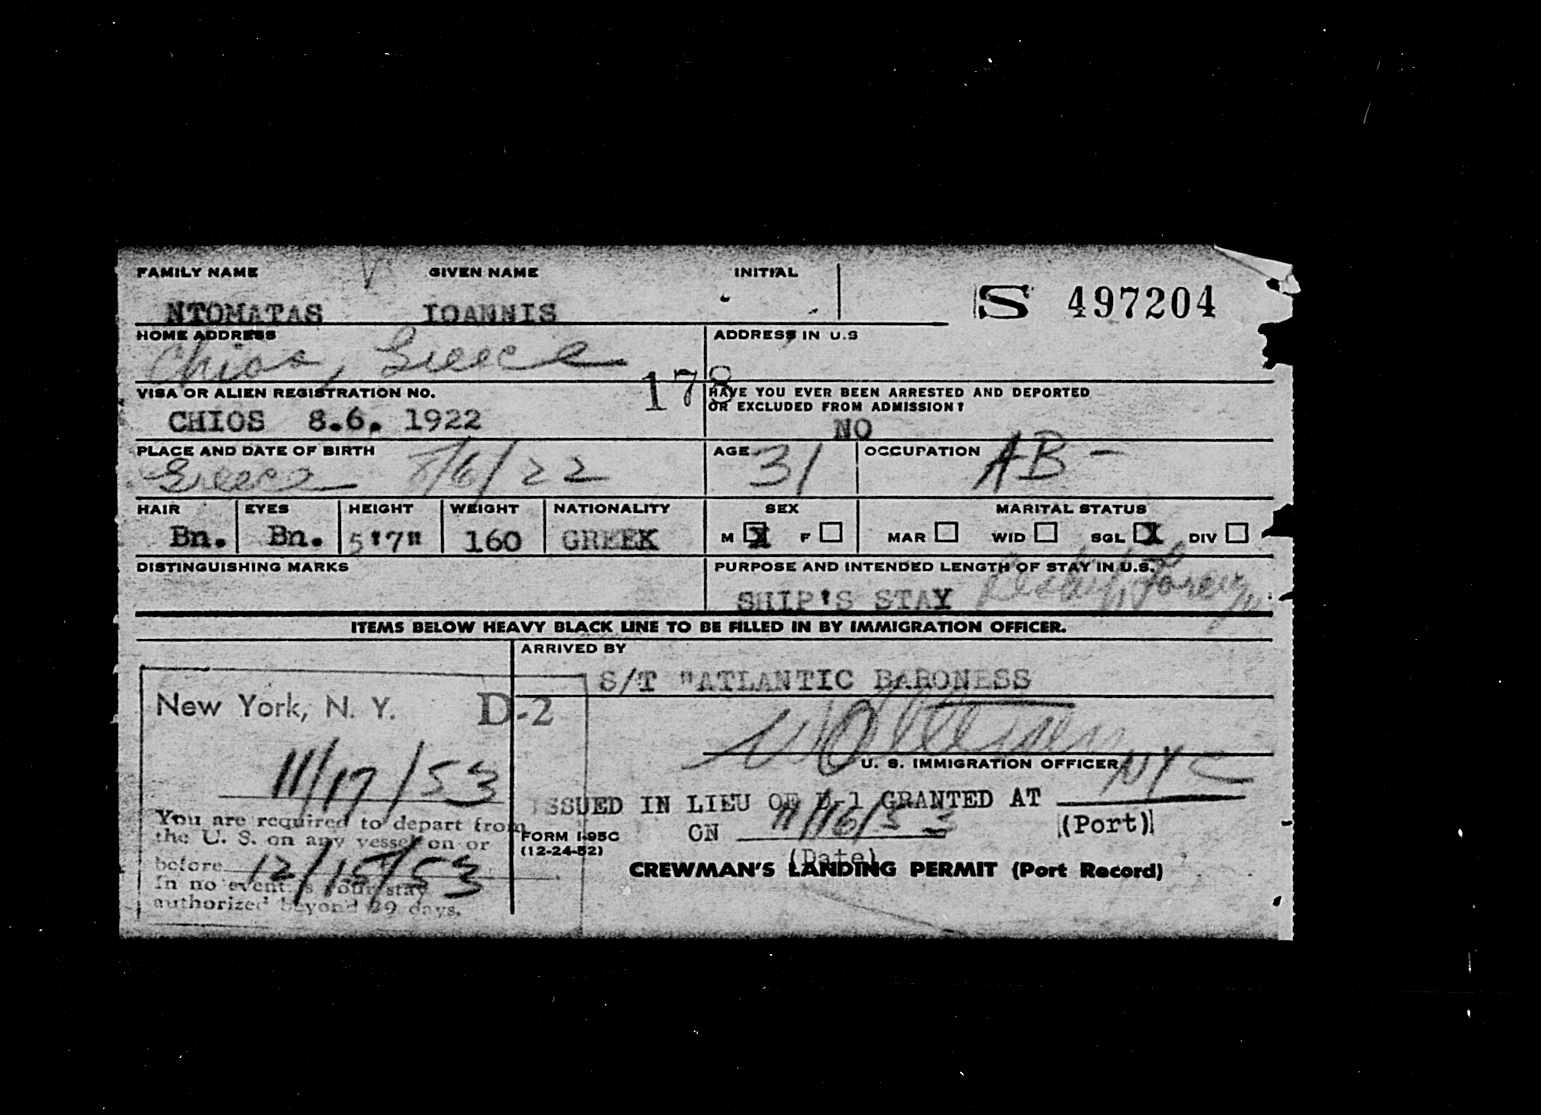 FAMILY NAME GIVEN NAME INITIAL
NTOMATAS IOANNIS
S 497204
HOME ADDRESS ADDRESS IN U.S
Chios, Greece
178
VISA OR ALIEN REGISTRATION NO. HAVE YOU EVER BEEN ARRESTED AND DEPORTED
OR EXCLUDED FROM ADMISSION?
CHIOS 8.6. 1922 NO
PLACE AND DATE OF BIRTH AGE OCCUPATION
Greece 8/6/22 31 AB -
HAIR EYES HEIGHT WEIGHT NATIONALITY SEX MARITAL STATUS
Bn. Bn. 5'7" 160 GREEK M X F MAR WID SGL X DIV
DISTINGUISHING MARKS PURPOSE AND INTENDED LENGTH OF STAY IN U.S.
SHIP'S STAY
ITEMS BELOW HEAVY BLACK LINE TO BE FILLED IN BY IMMIGRATION OFFICER.
ARRIVED BY
S/T "ATLANTIC BARONESS
New York, N. Y. D-2
11/17/53
You are required to depart from
the U. S. on any vessel on or
before 12/15/53
In no event is your stay
authorized beyond 29 days.
U. S. IMMIGRATION OFFICER
ISSUED IN LIEU OF D-1 GRANTED AT NYC
(Port)
ON 11/16/53
(Date)
FORM I-95C
(12-24-52)
CREWMAN'S LANDING PERMIT (Port Record)